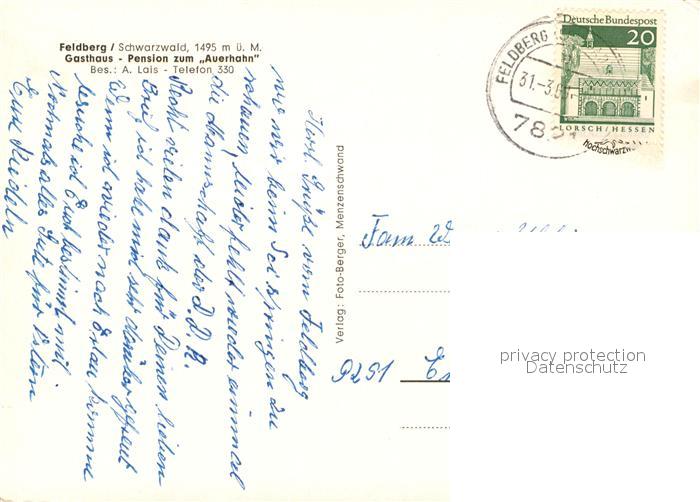 Feldberg / Schwarzwald, 1495 m ü. M.
Gasthaus - Pension zum „Auerhahn"
Bes.: A. Lais - Telefon 330
Herzl. Grüße vom Feldberg
wo wir beim Sci springen zu
schauen, leider fehlt wieder einmal
die Mannschaft der D.D.R.
Recht vielen dank für Deinen lieben
Brief ich habe mich sehr darüber gefreut
Wenn ich wieder nach komme
besuche ich Euch bestimmt mal
Nochmals alles Gute für
Eure
Verlag: Foto-Berger, Menzenschwand
Fam
FELDBERG
31.-3.69.
78
Deutsche Bundespost
20
LORSCH/HESSEN
hochschwarzw
privacy protection
Datenschutz